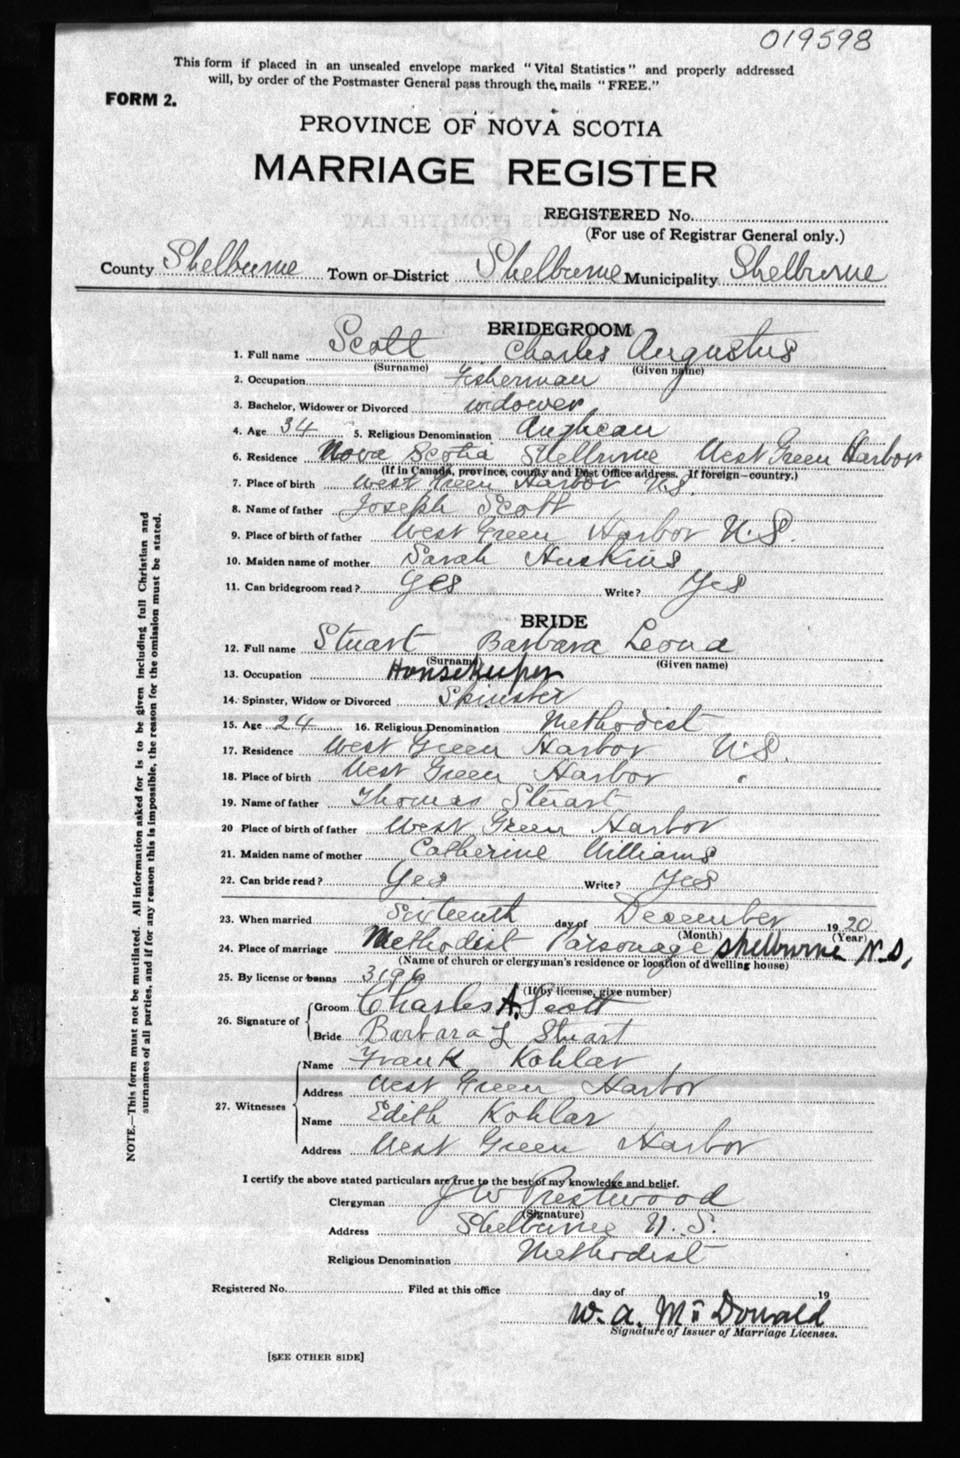 019598
This form if placed in an unsealed envelope marked "Vital Statistics" and properly addressed
will, by order of the Postmaster General pass through the mails "FREE."
FORM 2.
PROVINCE OF NOVA SCOTIA
MARRIAGE REGISTER
REGISTERED No.
(For use of Registrar General only.)
County Shelburne Town or District Shelburne Municipality Shelburne
BRIDEGROOM
1. Full name Scott Charles Augustus
(Surname) (Given name)
2. Occupation Fisherman
3. Bachelor, Widower or Divorced widower
4. Age 34 5. Religious Denomination Anglican
6. Residence Nova Scotia Shelburne West Green Harbor
(If in Canada, province, county and Post Office address. If foreign—country.)
7. Place of birth West Green Harbor N.S.
8. Name of father Joseph Scott
9. Place of birth of father West Green Harbor N.S.
10. Maiden name of mother Sarah Huskins
11. Can bridegroom read? Yes Write? Yes
BRIDE
12. Full name Stuart Barbara Leona
(Surname) (Given name)
13. Occupation Housekeeper
14. Spinster, Widow or Divorced Spinster
15. Age 24 16. Religious Denomination Methodist
17. Residence West Green Harbor N.S.
18. Place of birth West Green Harbor
19. Name of father Thomas Stuart
20 Place of birth of father West Green Harbor
21. Maiden name of mother Catherine Williams
22. Can bride read? Yes Write? Yes
23. When married Sixteenth day of December 1920
(Month) (Year)
24. Place of marriage Methodist Parsonage Shelburne N.S.
(Name of church or clergyman's residence or location of dwelling house)
25. By license or banns 3196
(If by license, give number)
26. Signature of Groom Charles A. Scott
Bride Barbara L Stuart
27. Witnesses Name Frank Kohlar
Address West Green Harbor
Name Edith Kohlar
Address West Green Harbor
I certify the above stated particulars are true to the best of my knowledge and belief.
Clergyman J W Prestwood
(Signature)
Address Shelburne N.S.
Religious Denomination Methodist
Registered No. Filed at this office day of 19
W. A. McDonald
Signature of Issuer of Marriage Licenses.
[SEE OTHER SIDE]
NOTE.—This form must not be mutilated. All information asked for is to be given including full Christian and
surnames of all parties, and if for any reason this is impossible, the reason for the omission must be stated.